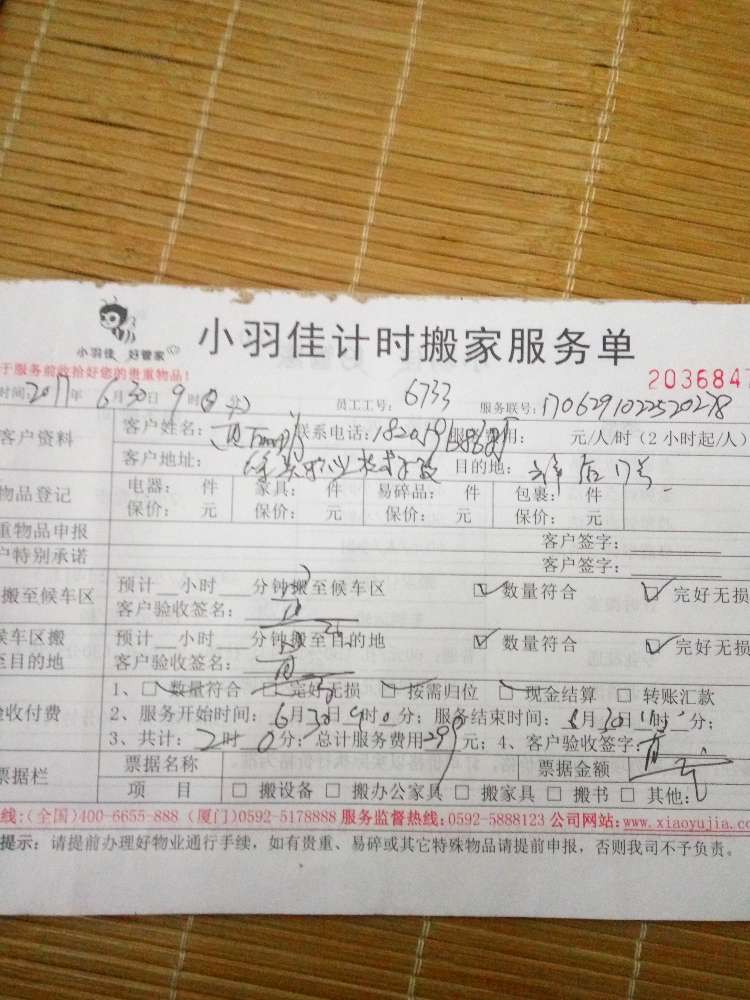 小羽佳 好管家
小羽佳计时搬家服务单
于服务前收拾好您的贵重物品!
2036847
时间:2017年6月30日9时 分 员工工号:6733 服务联号:1706291022520278
客户资料 客户姓名: 联系电话: 服务费用: 元/人/时(2小时起/人)
客户地址: 目的地: 后17号
物品登记 电器: 件 家具: 件 易碎品: 件 包裹: 件
保价: 元 保价: 元 保价: 元 保价: 元
重物品申报 客户签字:
户特别承诺 客户签字:
搬至候车区 预计__小时__分钟搬至候车区 数量符合 完好无损
客户验收签名:
候车区搬至目的地 预计__小时__分钟搬至目的地 数量符合 完好无损
客户验收签名:
验收付费 1、数量符合 完好无损 按需归位 现金结算 转账汇款
2、服务开始时间:6月30日9时0分;服务结束时间: 月30日11时 分;
3、共计:2时0分;总计服务费用299元;4、客户验收签字:
票据栏 票据名称 票据金额
项 目 搬设备 搬办公家具 搬家具 搬书 其他:
线:(全国)400-6655-888 (厦门)0592-5178888 服务监督热线:0592-5888123 公司网站:www.xiaoyujia.co
提示:请提前办理好物业通行手续,如有贵重、易碎或其它特殊物品请提前申报,否则我司不予负责。